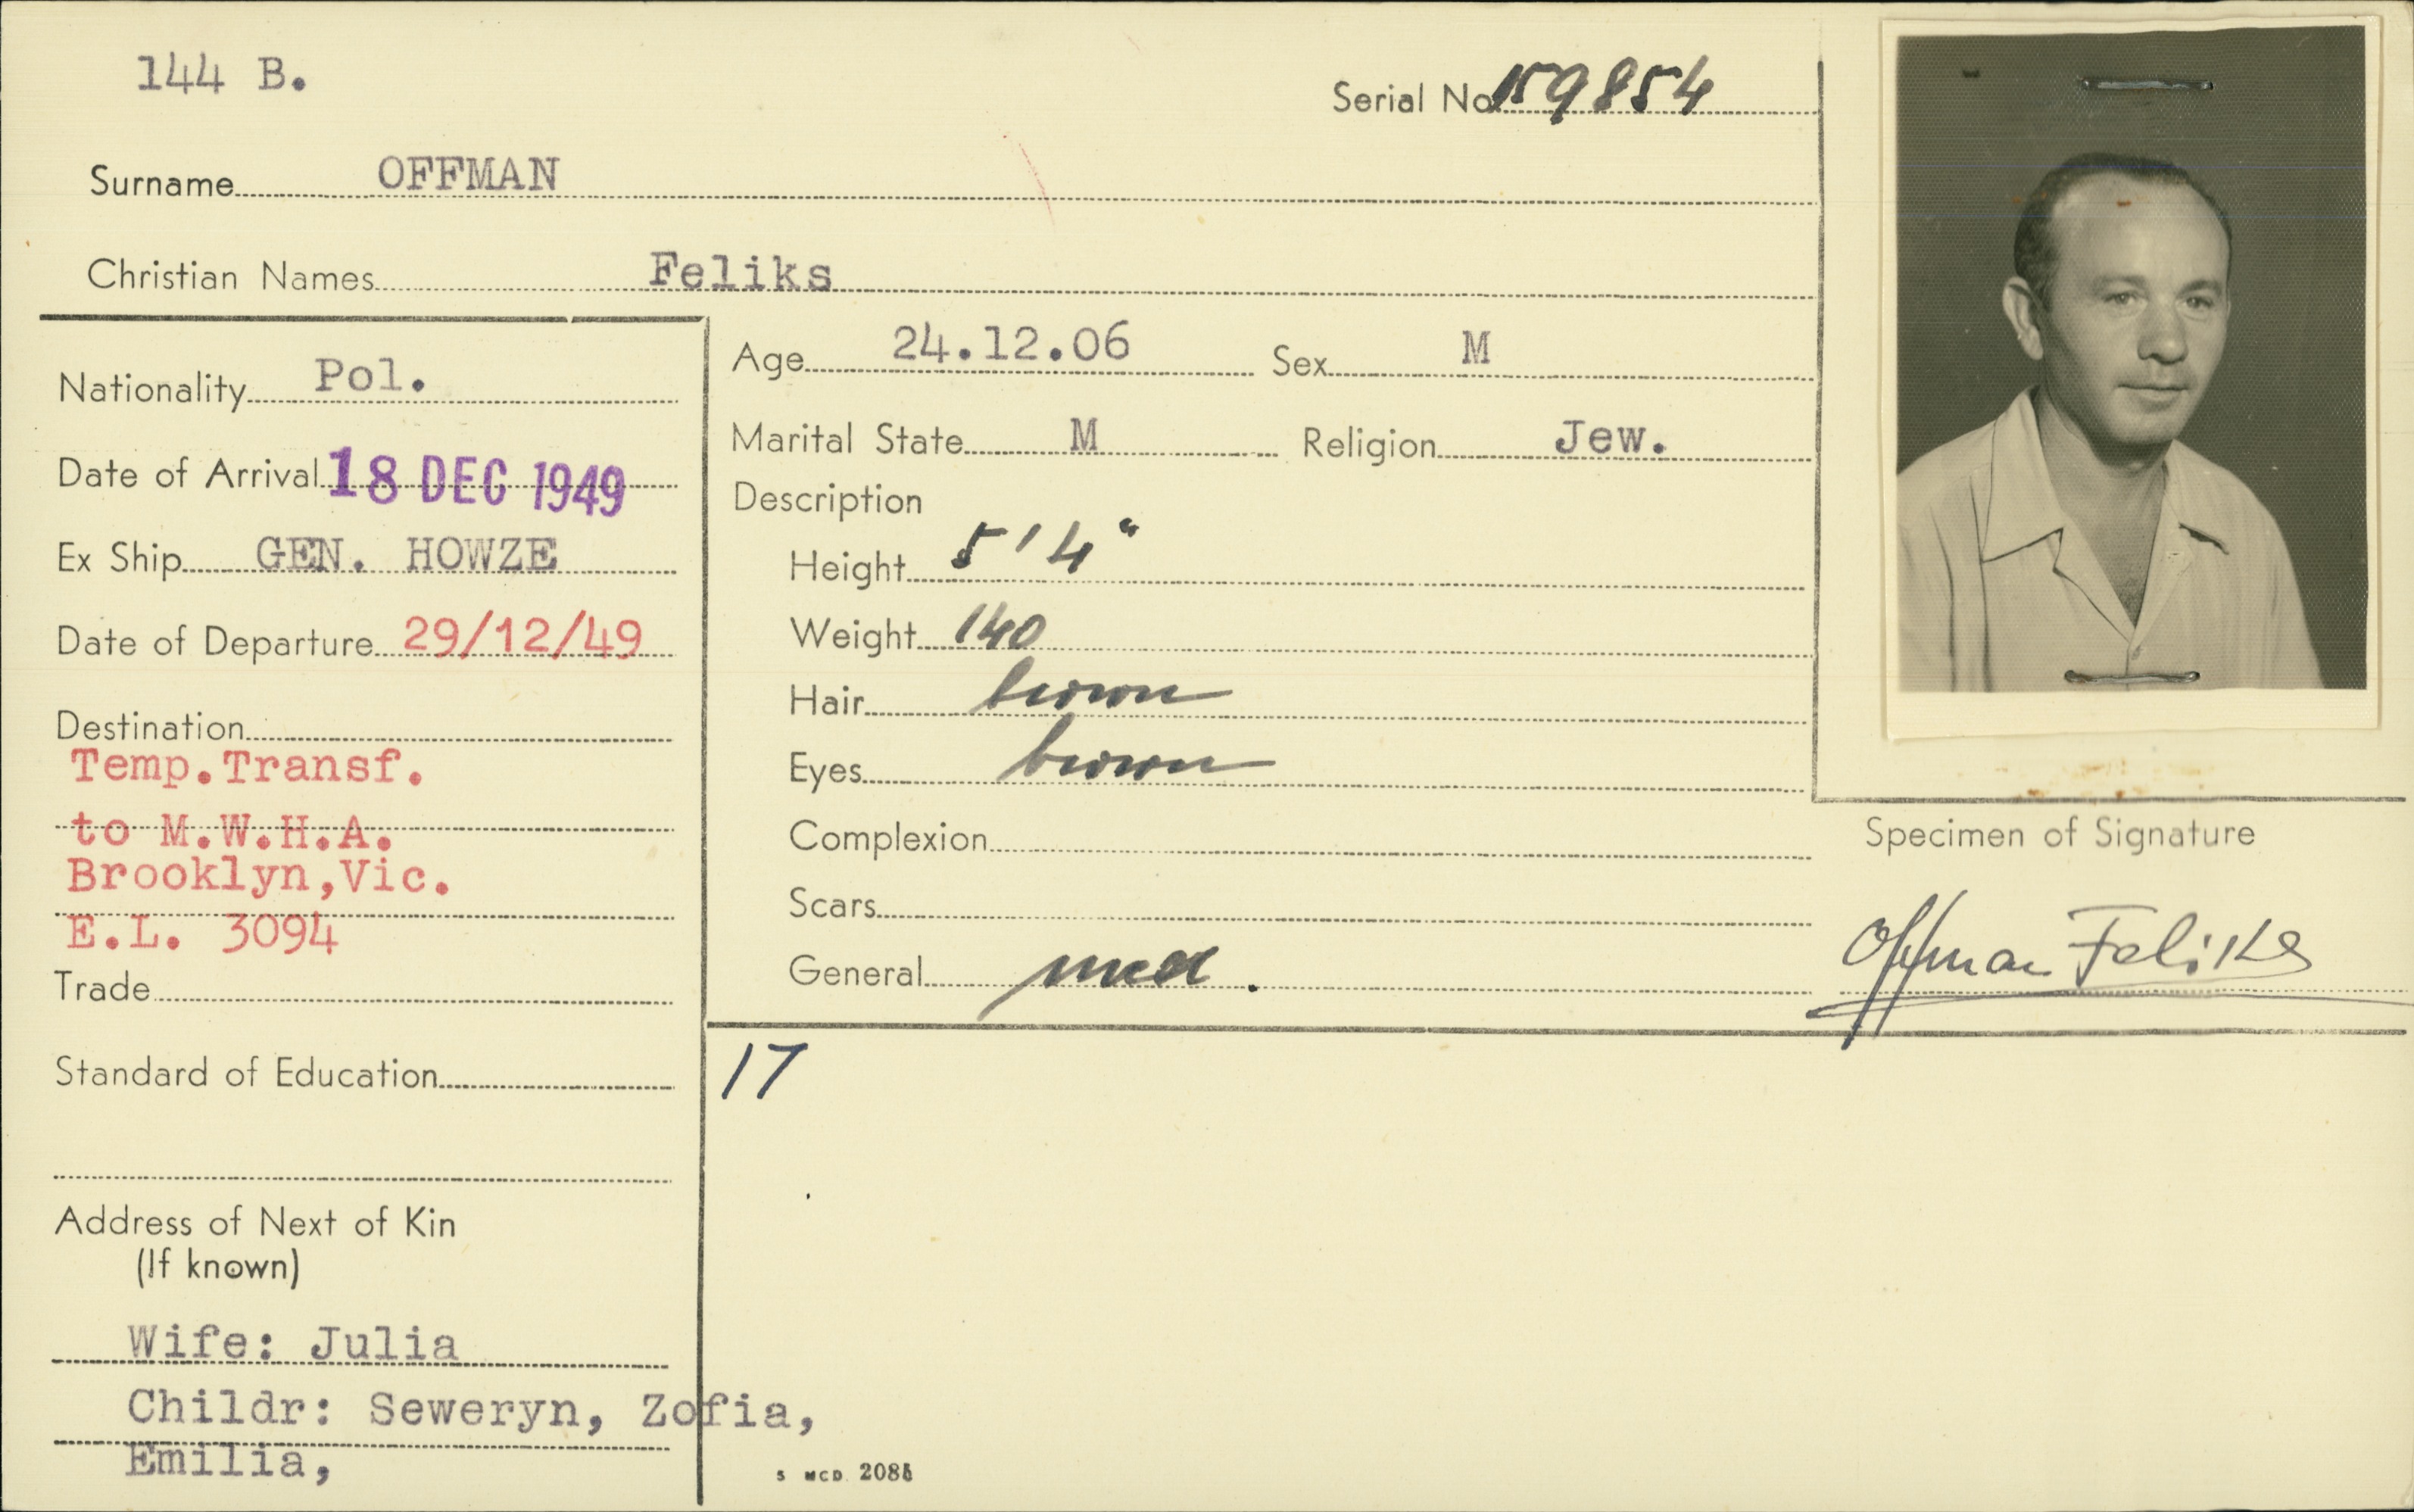 144 B.
Serial No. 159854
Surname OFFMAN
Christian Names Feliks
Nationality Pol.
Date of Arrival 18 DEC 1949
Ex Ship GEN. HOWZE
Date of Departure 29/12/49
Destination
Temp.Transf.
to M.W.H.A.
Brooklyn,Vic.
E.L. 3094
Trade
Standard of Education
Address of Next of Kin
(If known)
Wife: Julia
Childr: Seweryn, Zofia,
Emilia,
Age 24.12.06 Sex M
Marital State M Religion Jew.
Description
Height 5' 4"
Weight 140
Hair brown
Eyes brown
Complexion
Scars
General med.
17
Specimen of Signature
Offman Feliks